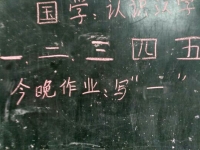 国学:认识汉字
一 二 三 四 五
今晚作业:写"一"